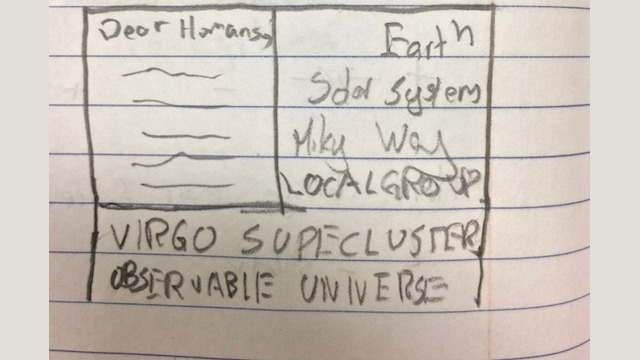 Dear Homans,
Earth
Solar System
Milky Way
LOCAL GROUP
VIRGO SUPECLUSTER
OBSERVABLE UNIVERSE